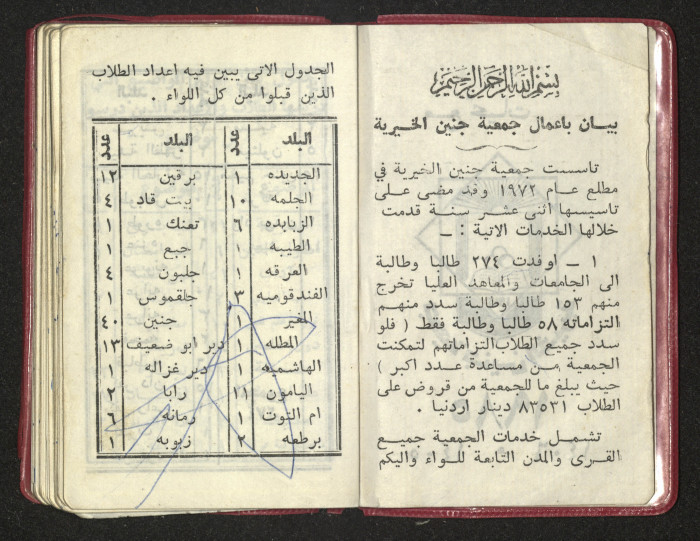 بسم الله الرحمن الرحيم
بيـــان باعمال جمعية جنين الخيرية
تاسست جمعية جنين الخيرية في
مطلع عام ١٩٧٢ وقد مضى على
تاسيسها اثنى عشر سنة قدمت
خلالها الخدمات الاتية : ــ
١ ــ اوفدت ٢٧٤ طالبا وطالبة
الى الجامعات والمعاهد العليا تخرج
منهم ١٥٣ طالبا وطالبة سدد منهم
التزاماته ٥٨ طالبا وطالبة فقط ( فلو
سدد جميع الطلاب التزاماتهم لتمكنت
الجمعية من مساعدة عدد اكبر )
حيث يبلغ ما للجمعية من قروض على
الطلاب ٨٣٥٣١ دينار اردنيا .
تشمل خدمات الجمعية جميع
القرى والمدن التابعة للواء واليكم
الجدول الاتى يبين فيه اعداد الطلاب
الذين قبلوا من كل اللواء .
البلد عدد البلد عدد
الجديده ١ برقين ١٢
الجلمه ١٠ بيت قاد ٤
الزبابده ٦ تعنك ١
الطيبه ١ جبع ١
العرقه ١ جلبون ٤
الفندقوميه ٣ جلقموس ١
المغير ١ جنين ٤٠
المطله ١ دير ابو ضعيف ١٣
الهاشميه ١ دير غزاله ١
اليامون ١١ رابا ٢
ام التوت ١ رمانه ٦
برطعه ٢ زبوبه ١